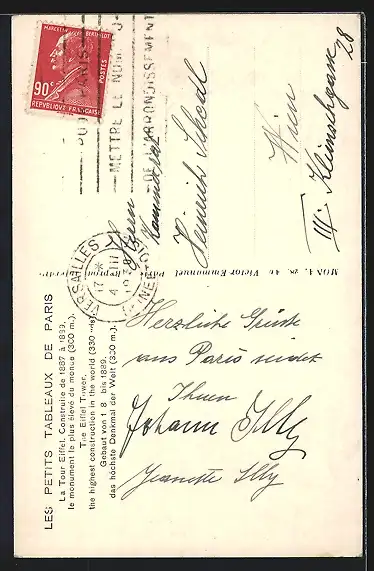 MARCELIN BERTHELOT
90c
POSTES
REPUBLIQUE FRANÇAISE
POUR PARIS
METTRE LE NUMERO
DE L'ARRONDISSEMENT
VERSAILLES
17 *
4 III
SEINE ET OISE
Herrn
Heinrich
Wien
III. Klimschgasse
28
Victor Emmanuel
LES PETITS TABLEAUX DE PARIS
La Tour Eiffel. Construite de 1887 à 1889.
le monument le plus élevé du monde (300 m.).
The Eiffel Tower,
the highest construction in the world (330 yds).
Gebaut von 1 8 bis 1889.
das höchste Denkmal der Welt (300 m.).
Herzliche Grüsse
aus Paris sendet
Ihnen
Johann Illy
Jeanette Illy